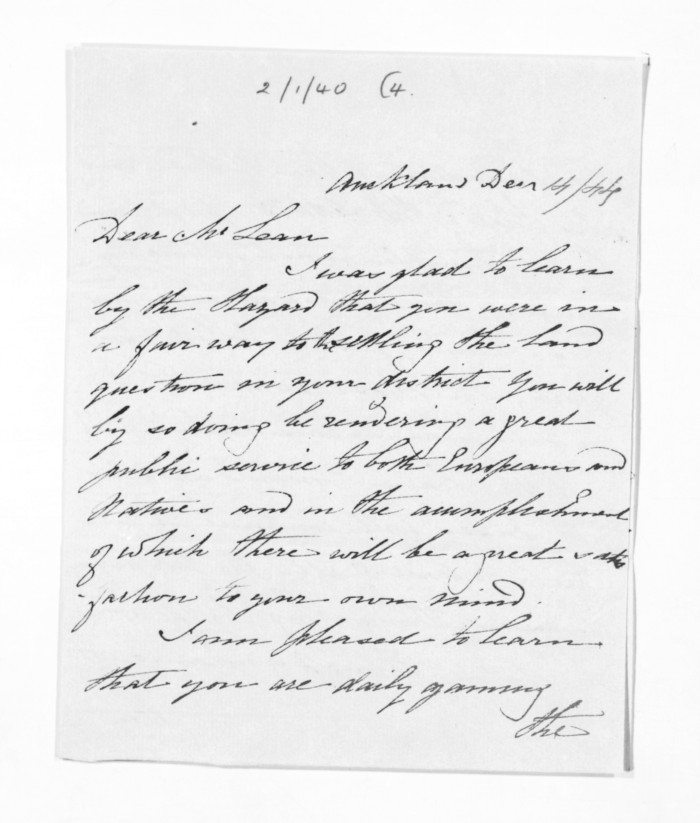 2/1/40 (4.
Auckland Decr 4/44
Dear McLean
I was glad to learn
by the Hazard that you were in
a fair way to settling the land
question in your district You will
by so doing be rendering a great
public service to both Europeans and
Natives and in the accumplishment
of which there will be a great satis
-faction to your own mind.
I am pleased to learn
that you are daily gaining
the